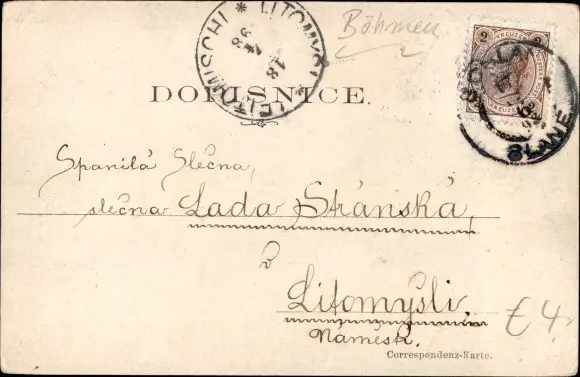 LITOMYŠL * LEITOMISCHL
18 4 98
Böhmen
2 KREUZER 2
SCHLAN
SLANÉ
DOPISNICE.
Spanilá Slečna,
slečna Lada Stránská,
v
Litomyšli.
Náměstí.
£4
Correspondenz-Karte.